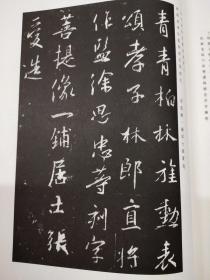 青青柏林旌勳表
頌孝子林郎直將
作監徐思忠等刻字
菩提像一鋪居士張
愛造